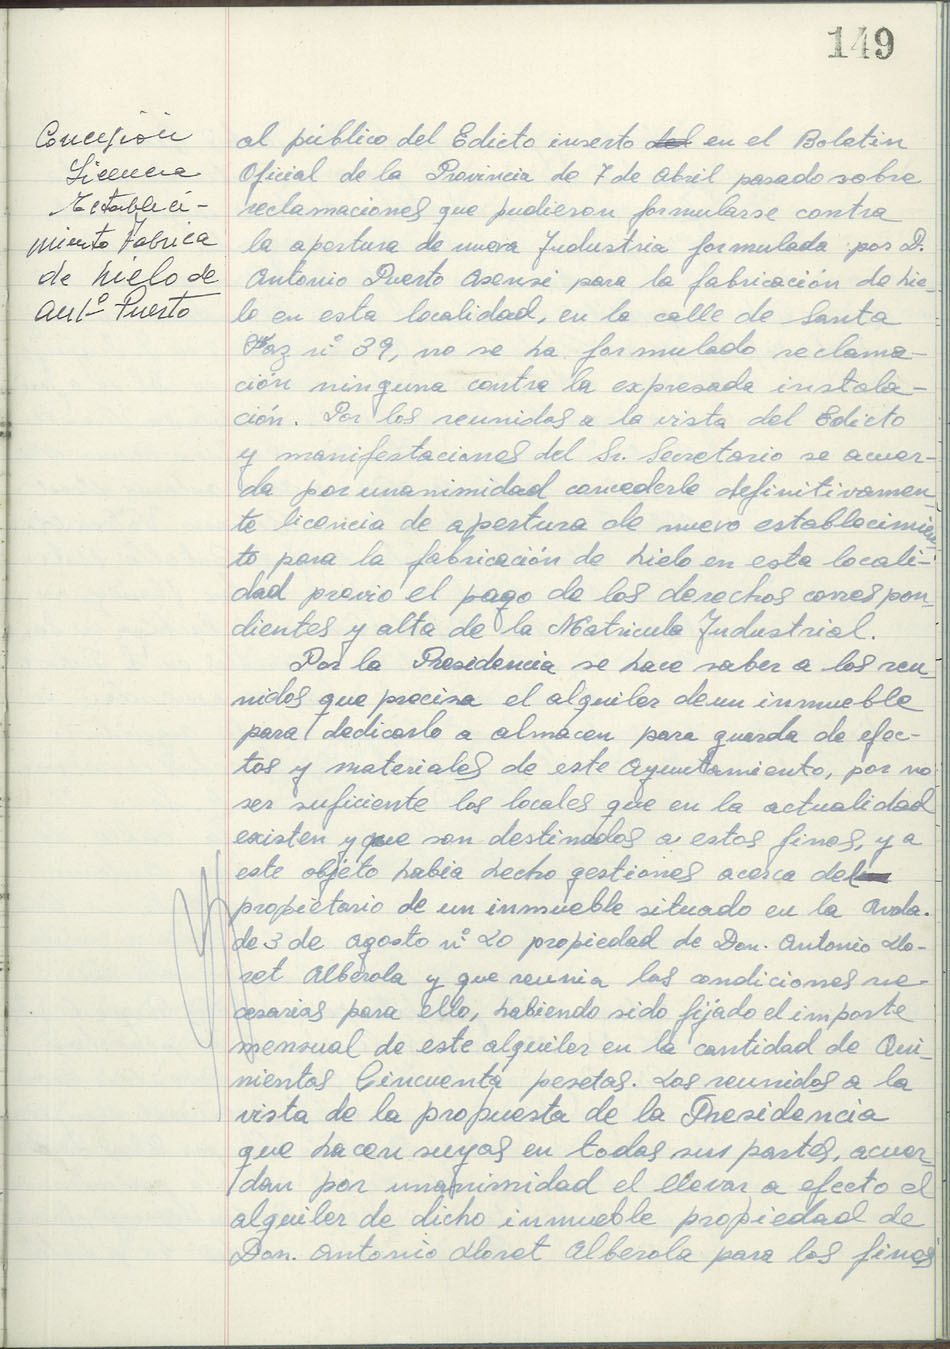 149
Concesión
Licencia
Estableci-
miento Fabrica
de hielo de
Antº Puerto
al público del Edicto inserto del en el Boletin
Oficial de la Provincia de 7 de Abril pasado sobre
reclamaciones que pudieron formularse contra
la apertura de nueva Industria formulada por D.
Antonio Puerto Asensi para la fabricación de hie-
lo en esta localidad, en la calle de Santa
Faz nº 39, no se ha formulado reclama-
ción ninguna contra la expresada instala-
ción. Por los reunidos a la vista del Edicto
y manifestaciones del Sr. Secretario se acuer-
da por unanimidad concederle definitivamen-
te licencia de apertura de nuevo establecimien-
to para la fabricación de hielo en esta locali-
dad previo el pago de los derechos correspon-
dientes y alta de la Matricula Industrial.
Por la Presidencia se hace saber a los reu-
nidos que precisa el alquiler de un inmueble
para dedicarlo a almacen para guarda de efec-
tos y materiales de este Ayuntamiento, por no
ser suficiente los locales que en la actualidad
existen y que son destinados a estos fines, y a
este objeto habia hecho gestiones acerca del
propietario de un inmueble situado en la Avda.
de 3 de Agosto nº 20 propiedad de Don. Antonio Llo-
ret Alberola y que reunia las condiciones ne-
cesarias para ello, habiendo sido fijado el importe
mensual de este alquiler en la cantidad de Qui-
nientas Cincuenta pesetas. Los reunidos a la
vista de la propuesta de la Presidencia
que hacen suyas en todas sus partes, acuer-
dan por unanimidad el llevar a efecto el
alquiler de dicho inmueble propiedad de
Don. Antonio Lloret Alberola para los fines